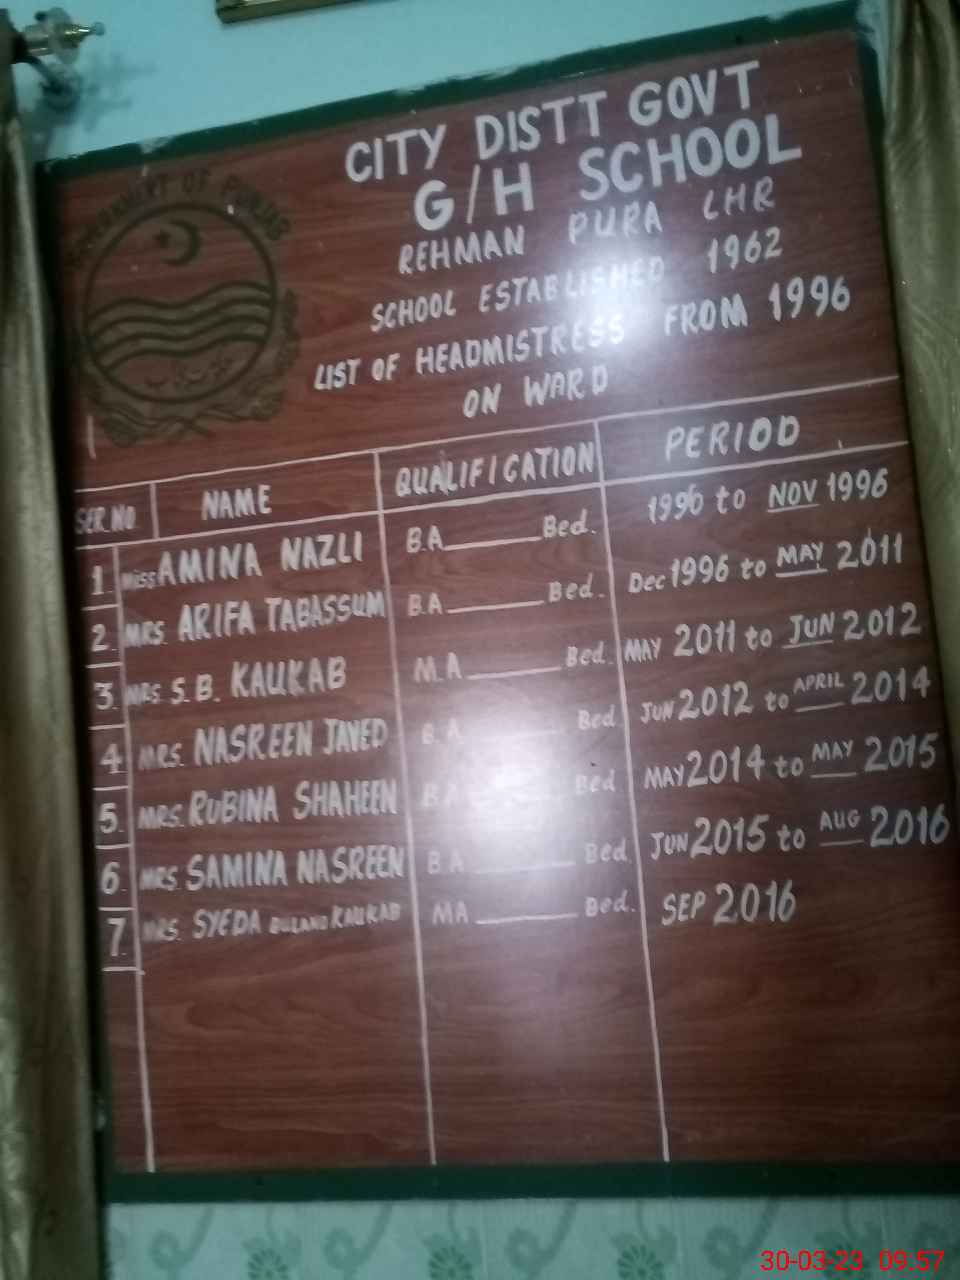 CITY DISTT GOVT
G/H SCHOOL
REHMAN PURA LHR
SCHOOL ESTABLISHED 1962
LIST OF HEADMISTRESS FROM 1996
ON WARD
GOVERNMENT OF PUNJAB
SER.NO NAME QUALIFICATION PERIOD
1. Miss AMINA NAZLI B.A Bed. 1996 to NOV 1996
2. MRS. ARIFA TABASSUM B.A Bed. Dec 1996 to MAY 2011
3. MRS S.B. KAUKAB M.A Bed. MAY 2011 to JUN 2012
4 MRS. NASREEN JAVED B.A Bed. JUN 2012 to APRIL 2014
5. MRS. RUBINA SHAHEEN B.A Bed MAY 2014 to MAY 2015
6. MRS SAMINA NASREEN B.A Bed. JUN 2015 to AUG 2016
7. MRS. SYEDA KAUKAB MA Bed. SEP 2016
30-03-23 09:57